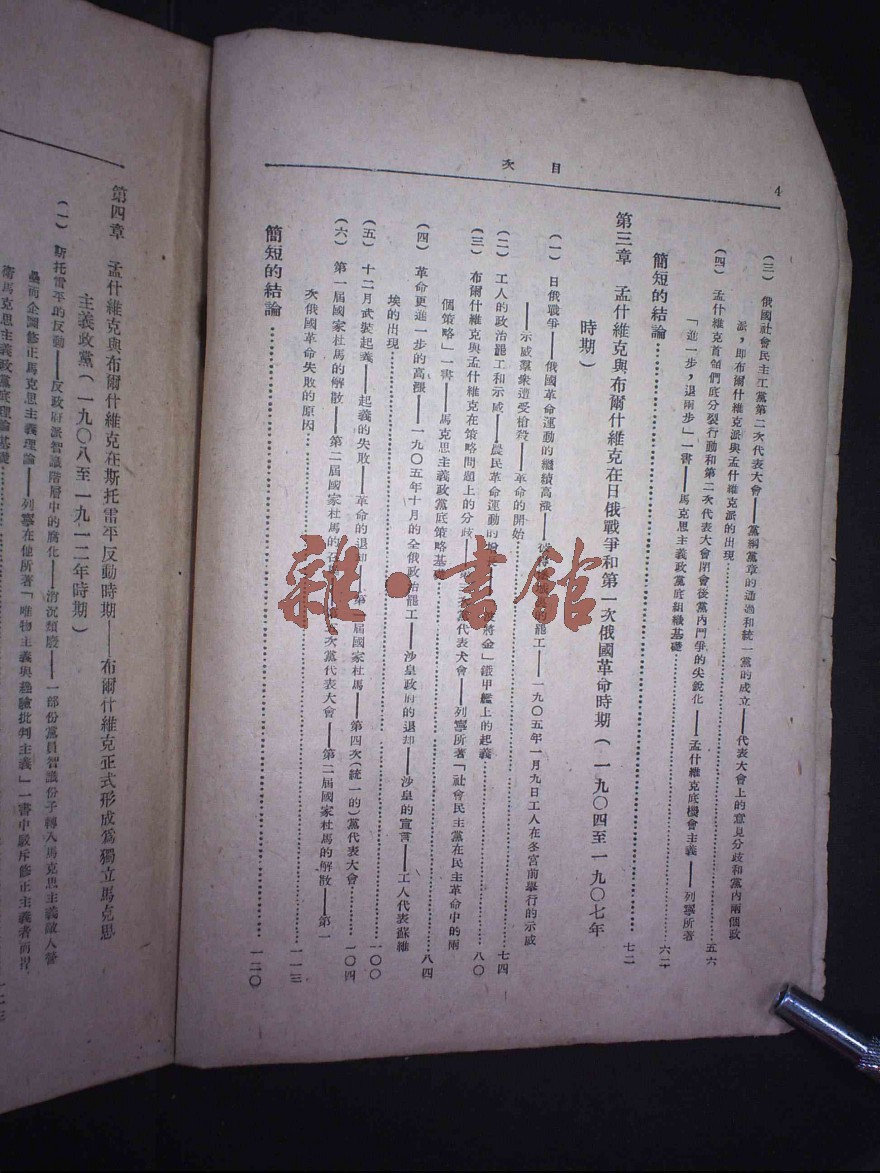 4
目次
(三) 俄國社會民主工黨第二次代表大會——黨綱黨章的通過和統一黨的成立——代表大會上的意見分歧和黨內兩個政
派,即布爾什維克派與孟什維克派的出現 五六
(四) 孟什維克首領們底分裂行動和第二次代表大會閉會後黨內鬥爭的尖銳化——孟什維克底機會主義——列寧所著
「進一步,退兩步」一書——馬克思主義政黨底組織基礎 六二
簡短的結論 七二
第三章 孟什維克與布爾什維克在日俄戰爭和第一次俄國革命時期(一九〇四至一九〇七年
時期)
(一) 日俄戰爭——俄國革命運動的繼續高漲——的罷工——一九〇五年一月九日工人在冬宮前舉行的示威
——示威羣衆遭受槍殺——革命的開始 七四
(二) 工人的政治罷工和示威——農民革命運動的將金」鐵甲艦上的起義 八〇
(三) 布爾什維克與孟什維克在策略問題上的分歧——黨代表大會——列寧所著「社會民主黨在民主革命中的兩
個策略」一書——馬克思主義政黨底策略基礎 八四
(四) 革命更進一步的高漲——一九〇五年十月的全俄政治罷工——沙皇政府的退却——沙皇的宣言——工人代表蘇維
埃的出現 一〇〇
(五) 十二月武裝起義——起義的失敗——革命的退却——第一屆國家杜馬——第四次(統一的)黨代表大會 一〇四
(六) 第一屆國家杜馬的解散——第二屆國家杜馬的召次黨代表大會——第二屆國家杜馬的解散——第一
次俄國革命失敗的原因 一一三
簡短的結論 一二〇
第四章 孟什維克與布爾什維克在斯托雷平反動時期——布爾什維克正式形成爲獨立馬克思
主義政黨(一九〇八至一九一二年時期)
(一) 斯托雷平的反動——反政府派智識階層中的腐化——消沉頹廢——一部份黨員智識份子轉入馬克思主義敵人營
壘而企圖修正馬克思主義理論——列寧在他所著「唯物主義與經驗批判主義」一書中駁斥修正主義者而捍
衛馬克思主義政黨底理論基礎
雜·書館